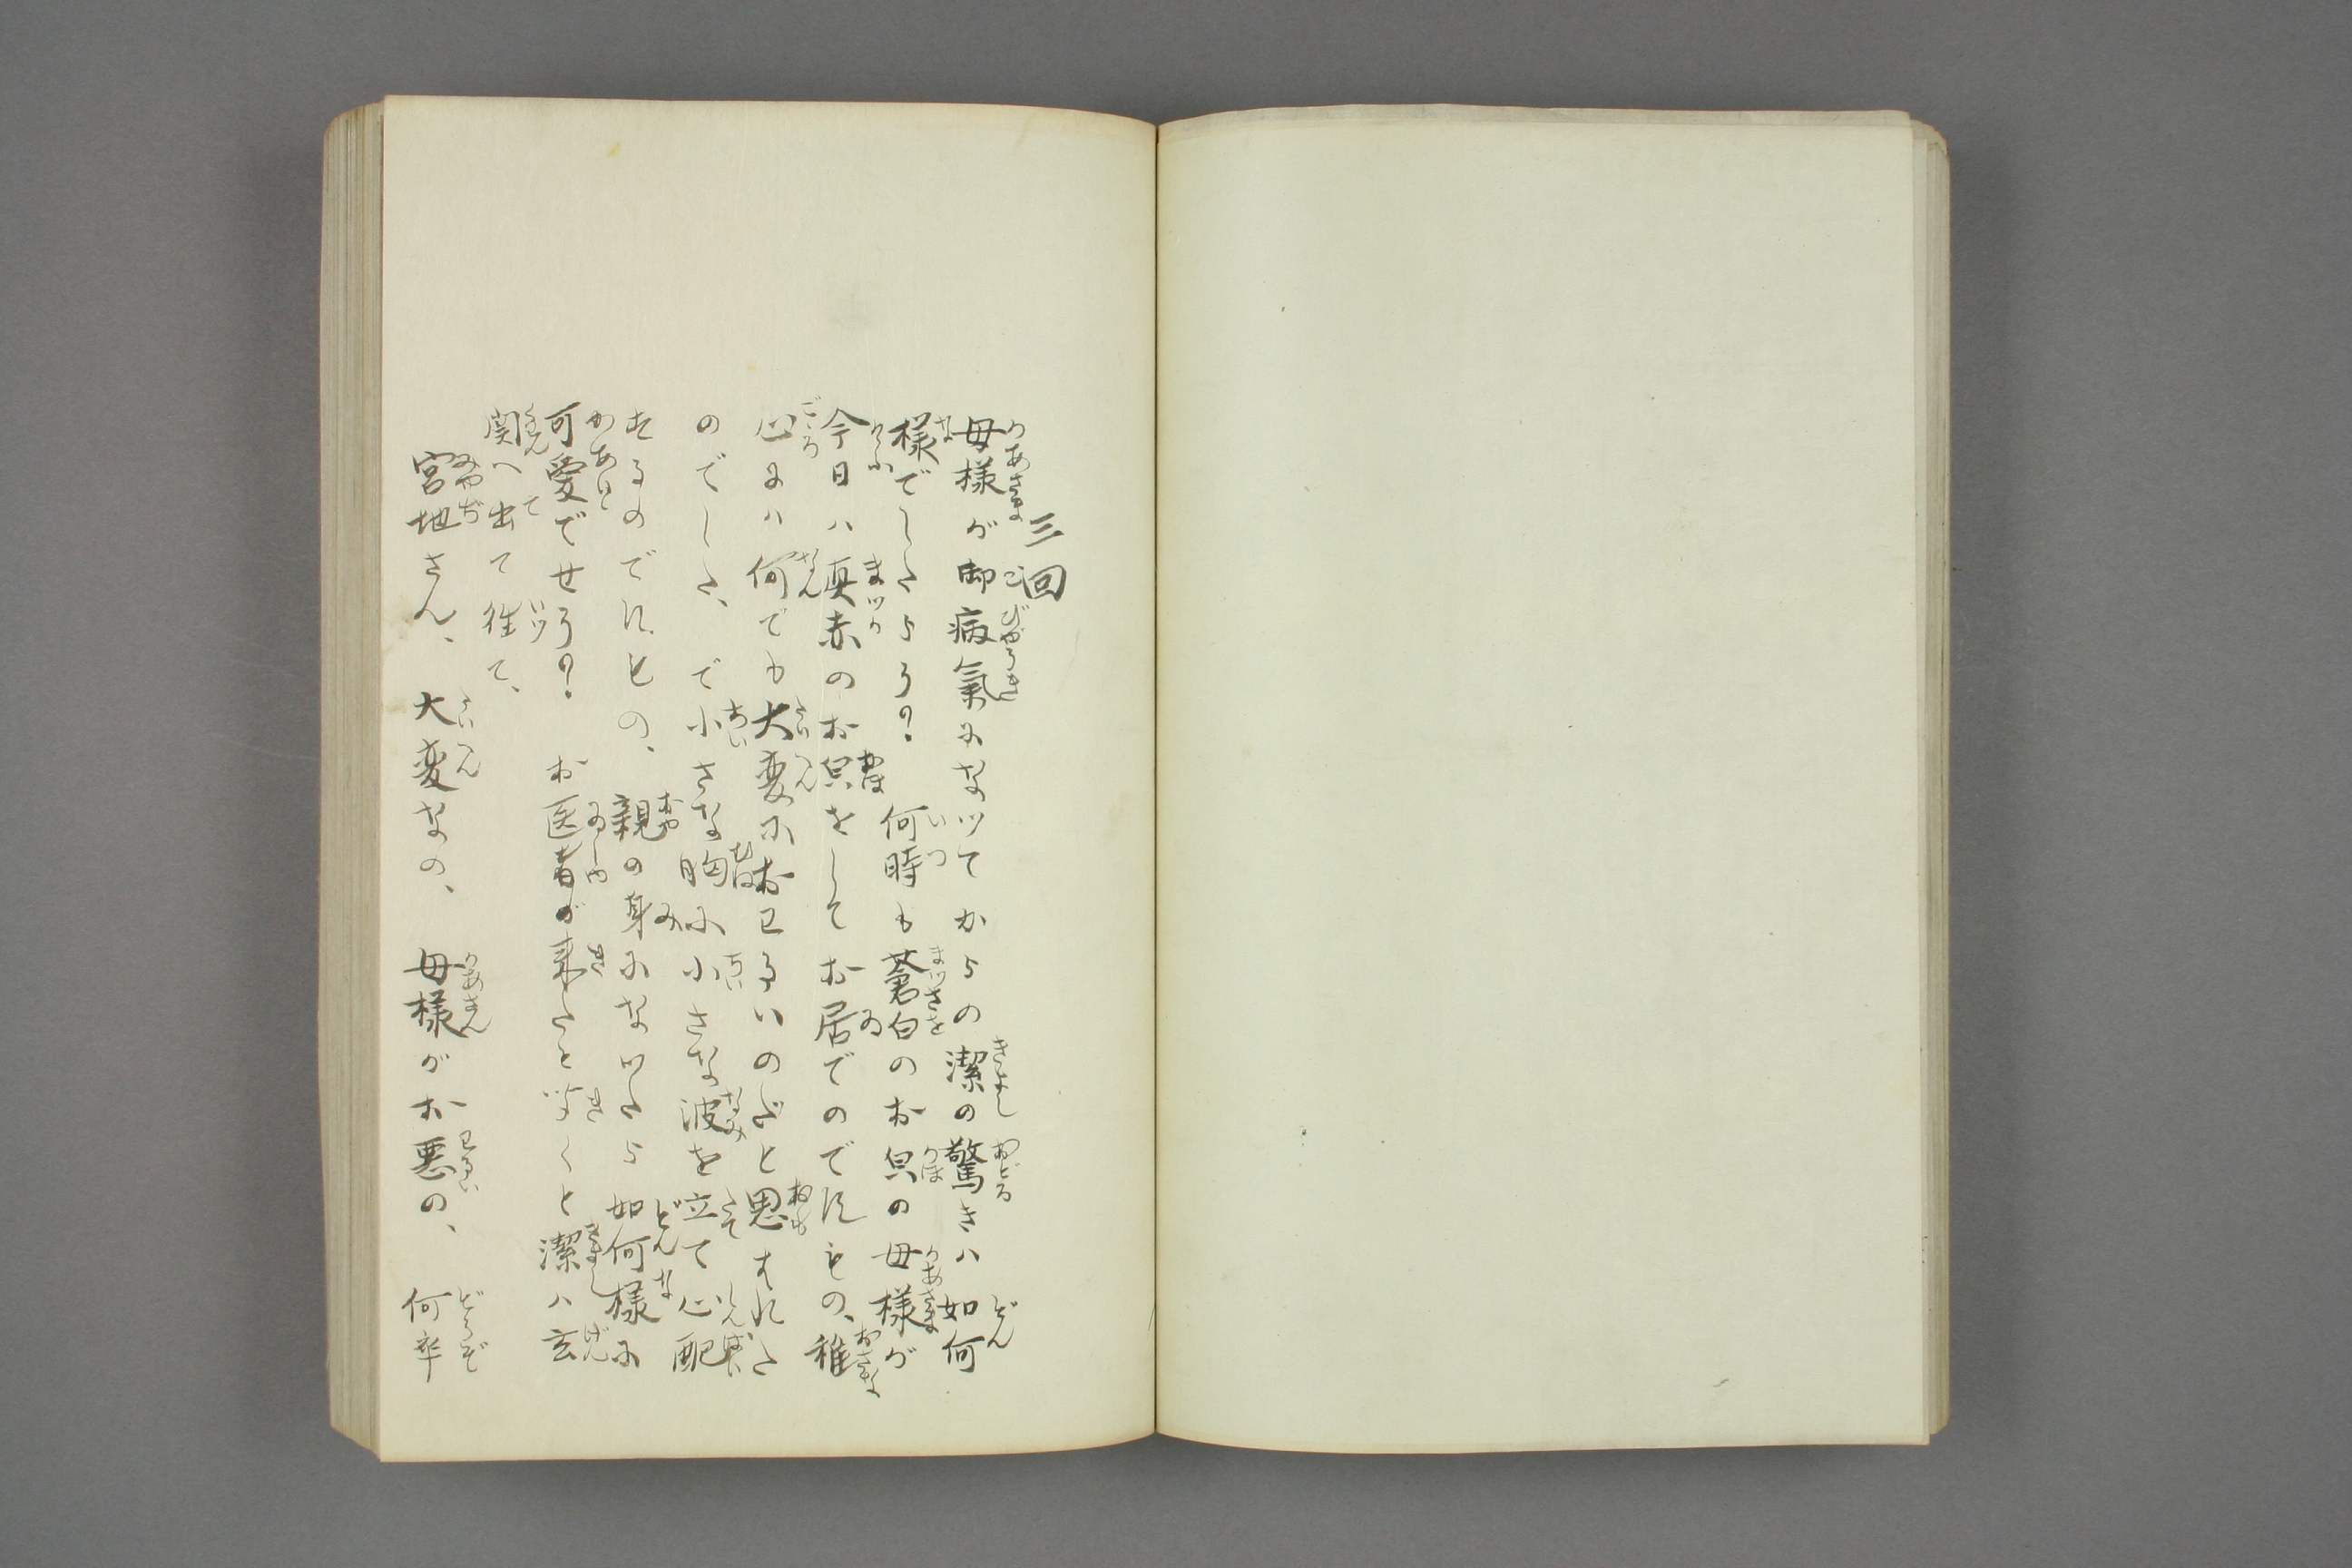 三回
母様が御病氣になツてからの潔の驚きハ如何
様でしたらう？　何時も蒼白のお皃の母様が
今日ハ真赤のお皃をしてお居でのですもの、稚
心にハ何でも大変にお已るいのだと思はれた
のでした、で小さな胸に小さな波を立て心配
するのですもの、親の身になツたら如何様に
可愛でせう？　お医者が来たと聞くと潔ハ玄
関へ出て往て、
宮地さん、大変なの、母様がお悪の、何卒